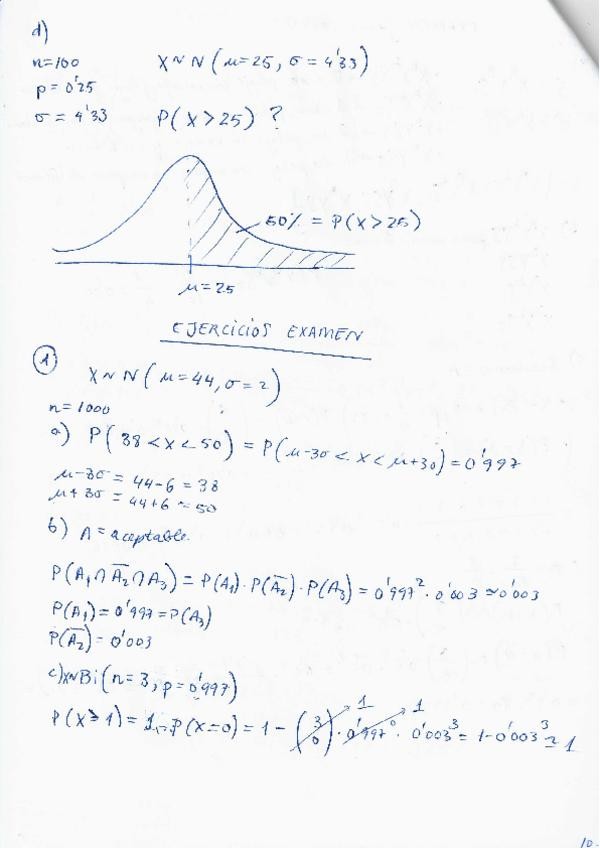 d)
n=100 X~N(μ=25, σ=4'33)
p=0'25
σ=4'33 P(X>25)?
50% = P(X>25)
μ=25
EJERCICIOS EXAMEN
1
X~N(μ=44, σ=2)
n=1000
a) P(38<X<50) = P(μ-3σ<X<μ+3σ)=0'997
μ-3σ = 44-6 = 38
μ+3σ = 44+6 = 50
b) A=aceptable.
P(A₁∩A̅₂∩A₃)=P(A₁)·P(A̅₂)·P(A₃)=0'997²·0'003≈0'003
P(A₁)=0'997=P(A₃)
P(A̅₂)=0'003
c) X~Bi(n=3, p=0'997)
1 1
P(X≥1)=1-P(X=0)=1-(3 0)·0'997⁰·0'003³=1-0'003³≃1
10